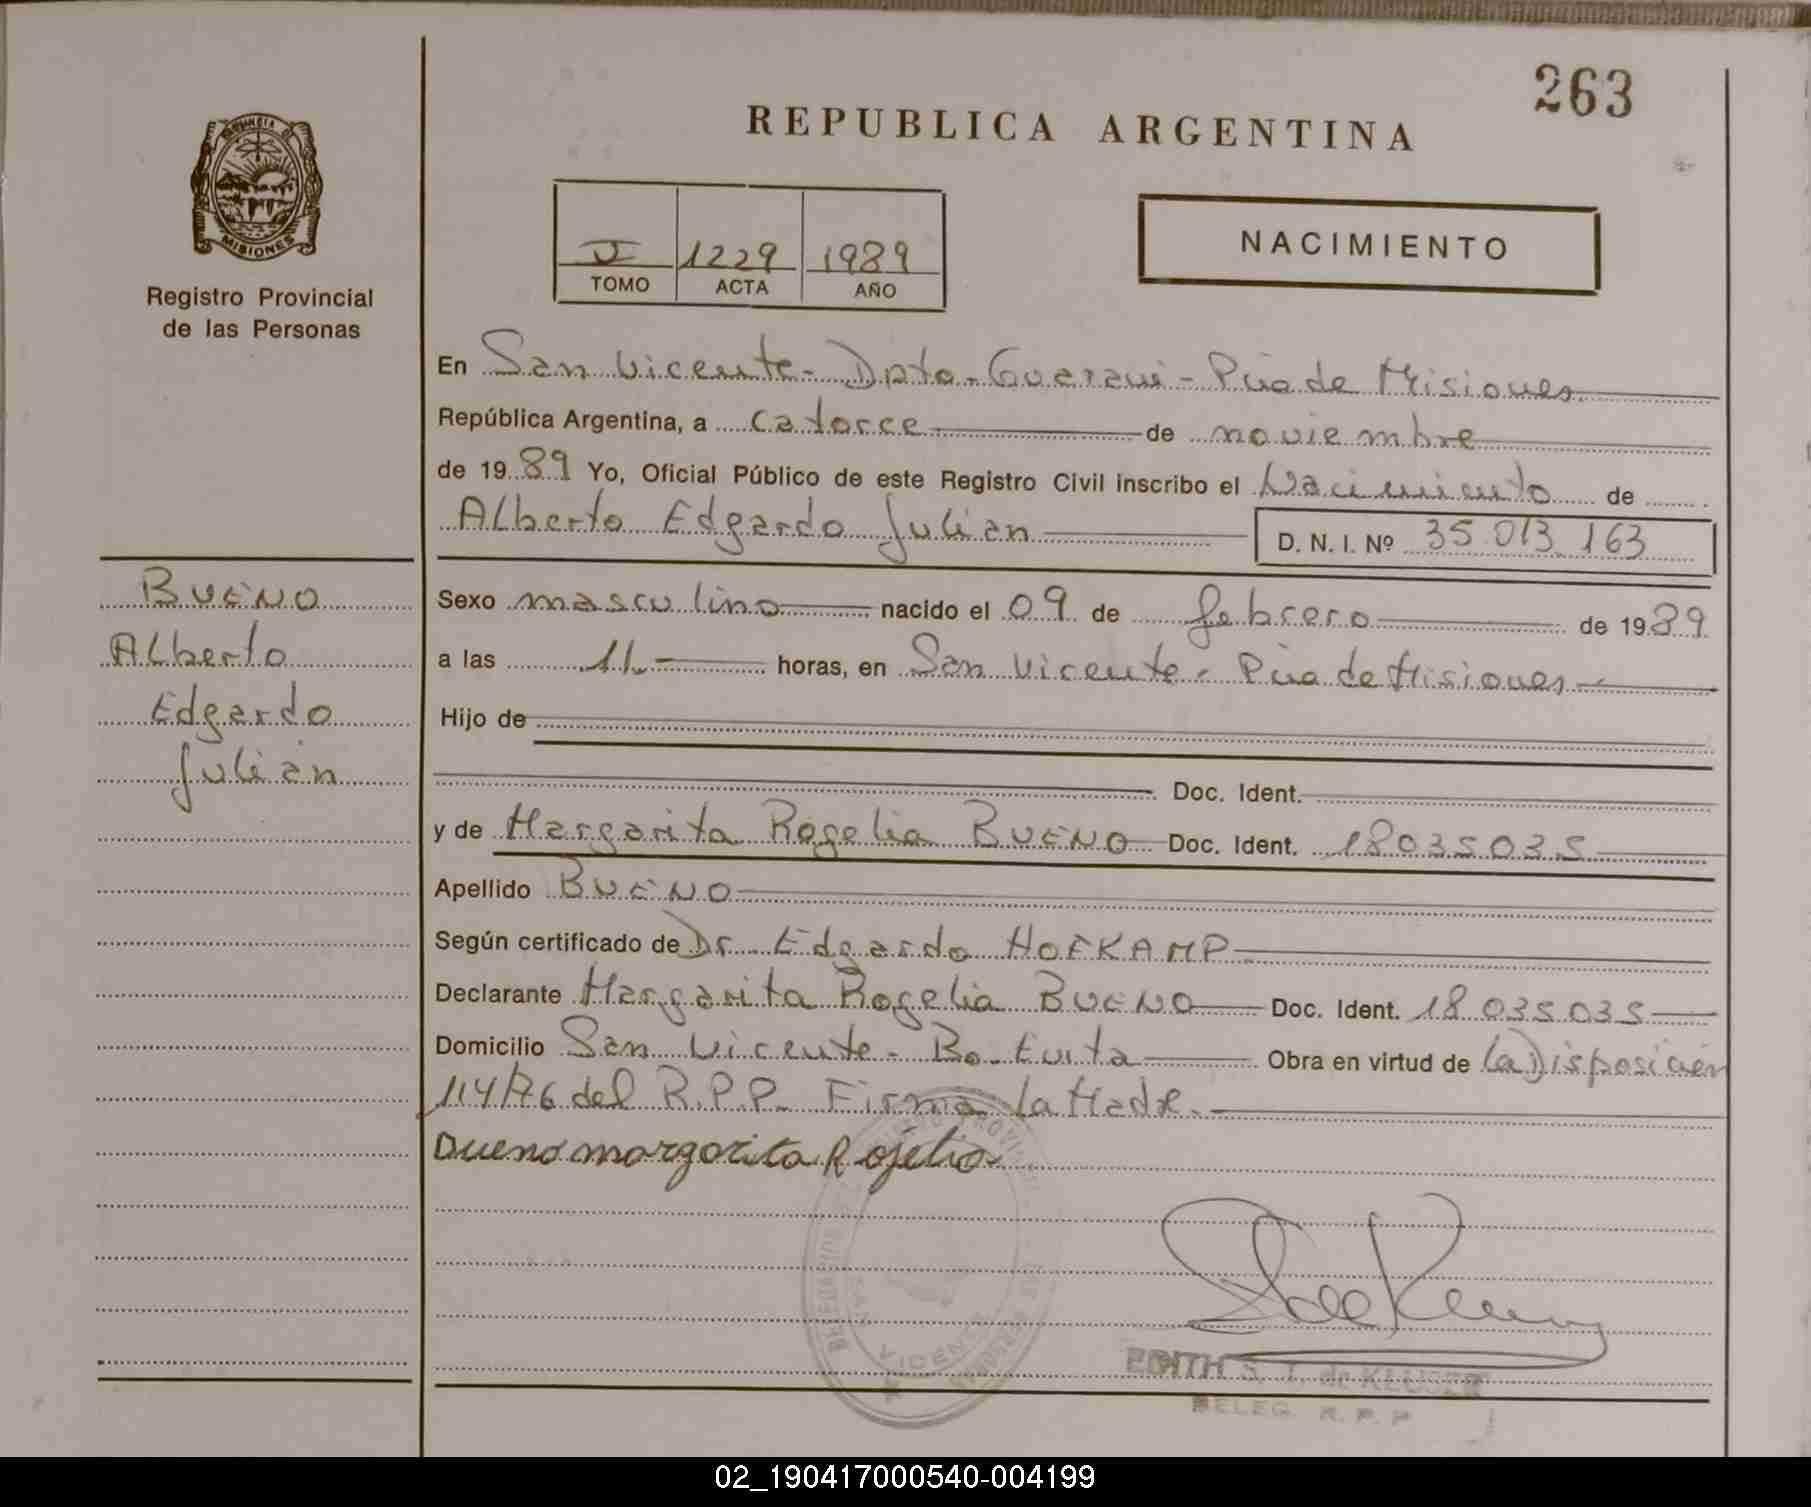 263
REPUBLICA ARGENTINA
PROVINCIA D
MISIONES
Registro Provincial
de las Personas
1229 1989
TOMO ACTA AÑO
NACIMIENTO
En San Vicente - Dpto - Guaraní - Pcia de Misiones
República Argentina, a catorce de noviembre
de 1989 Yo, Oficial Público de este Registro Civil inscribo el Nacimiento de
Alberto Edgardo Julian D. N. I. Nº 35.013.163
BUENO
Alberto
Edgardo
Julián
Sexo masculino nacido el 09 de febrero de 1989
a las 11 horas, en San Vicente - Pcia de Misiones
Hijo de
Doc. Ident.
y de Margarita Rogelia BUENO Doc. Ident. 18035035
Apellido BUENO
Según certificado de Dr. Edgardo HOFKAMP
Declarante Margarita Rogelia BUENO Doc. Ident. 18 035 035
Domicilio San Vicente - Bo. Evita Obra en virtud de la Disposición
114/76 del R.P.P. Firma la Madre.
Bueno margarita Rojelia
VICENTE
EDITH S. T. de KLUSER
DELEG. R. P. P
02_190417000540-004199